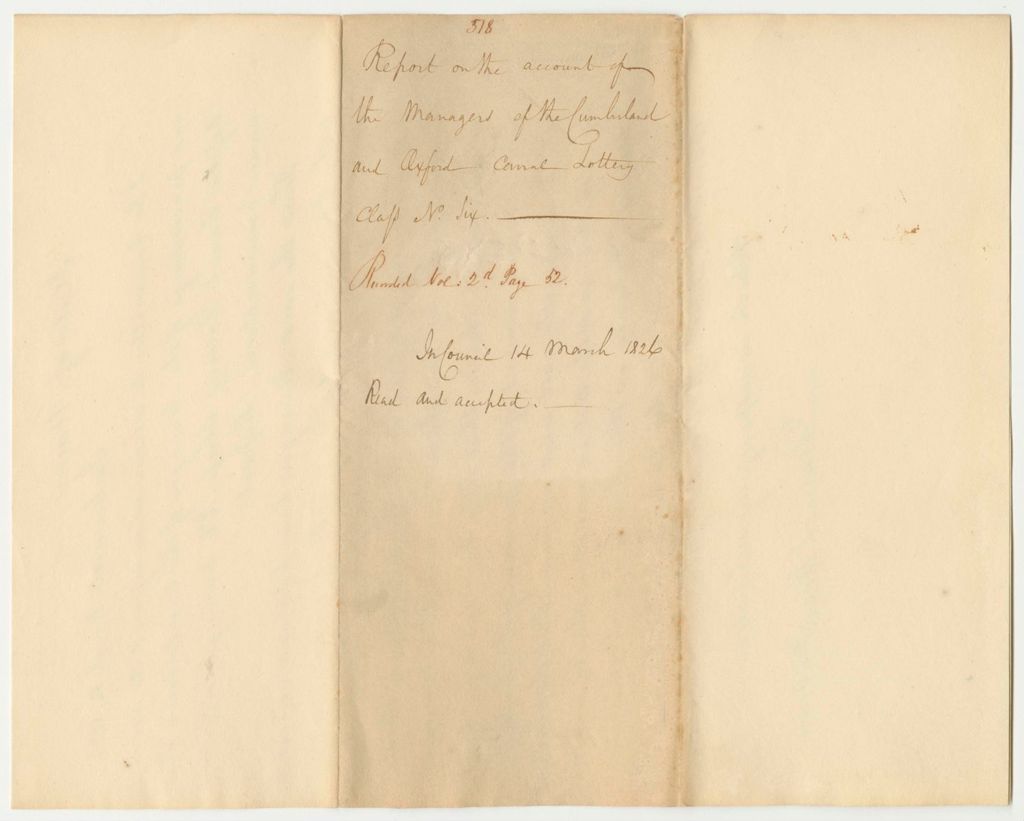 518
Report on the account of
the Managers of the Cumberland
and Oxford Canal Lottery
Class No. Six.
Recorded Vol: 2d. Page 52.
In Council 14 March 1826
Read and accepted.